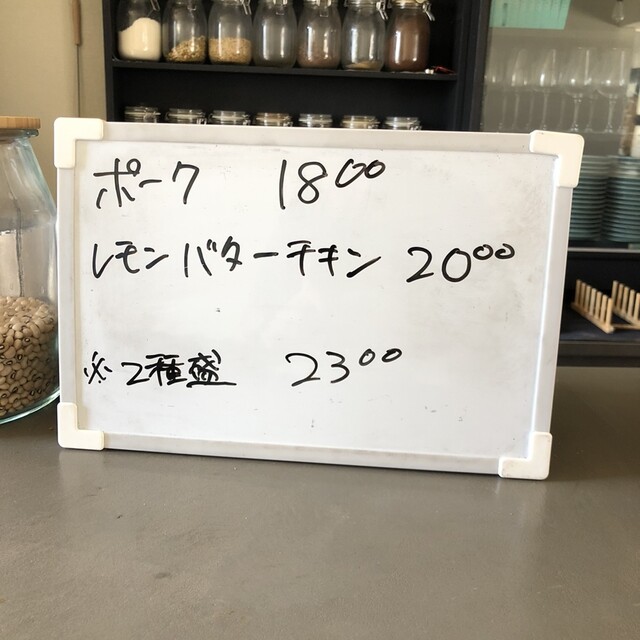 ポーク 1800
レモンバターチキン 2000
※2種盛 2300